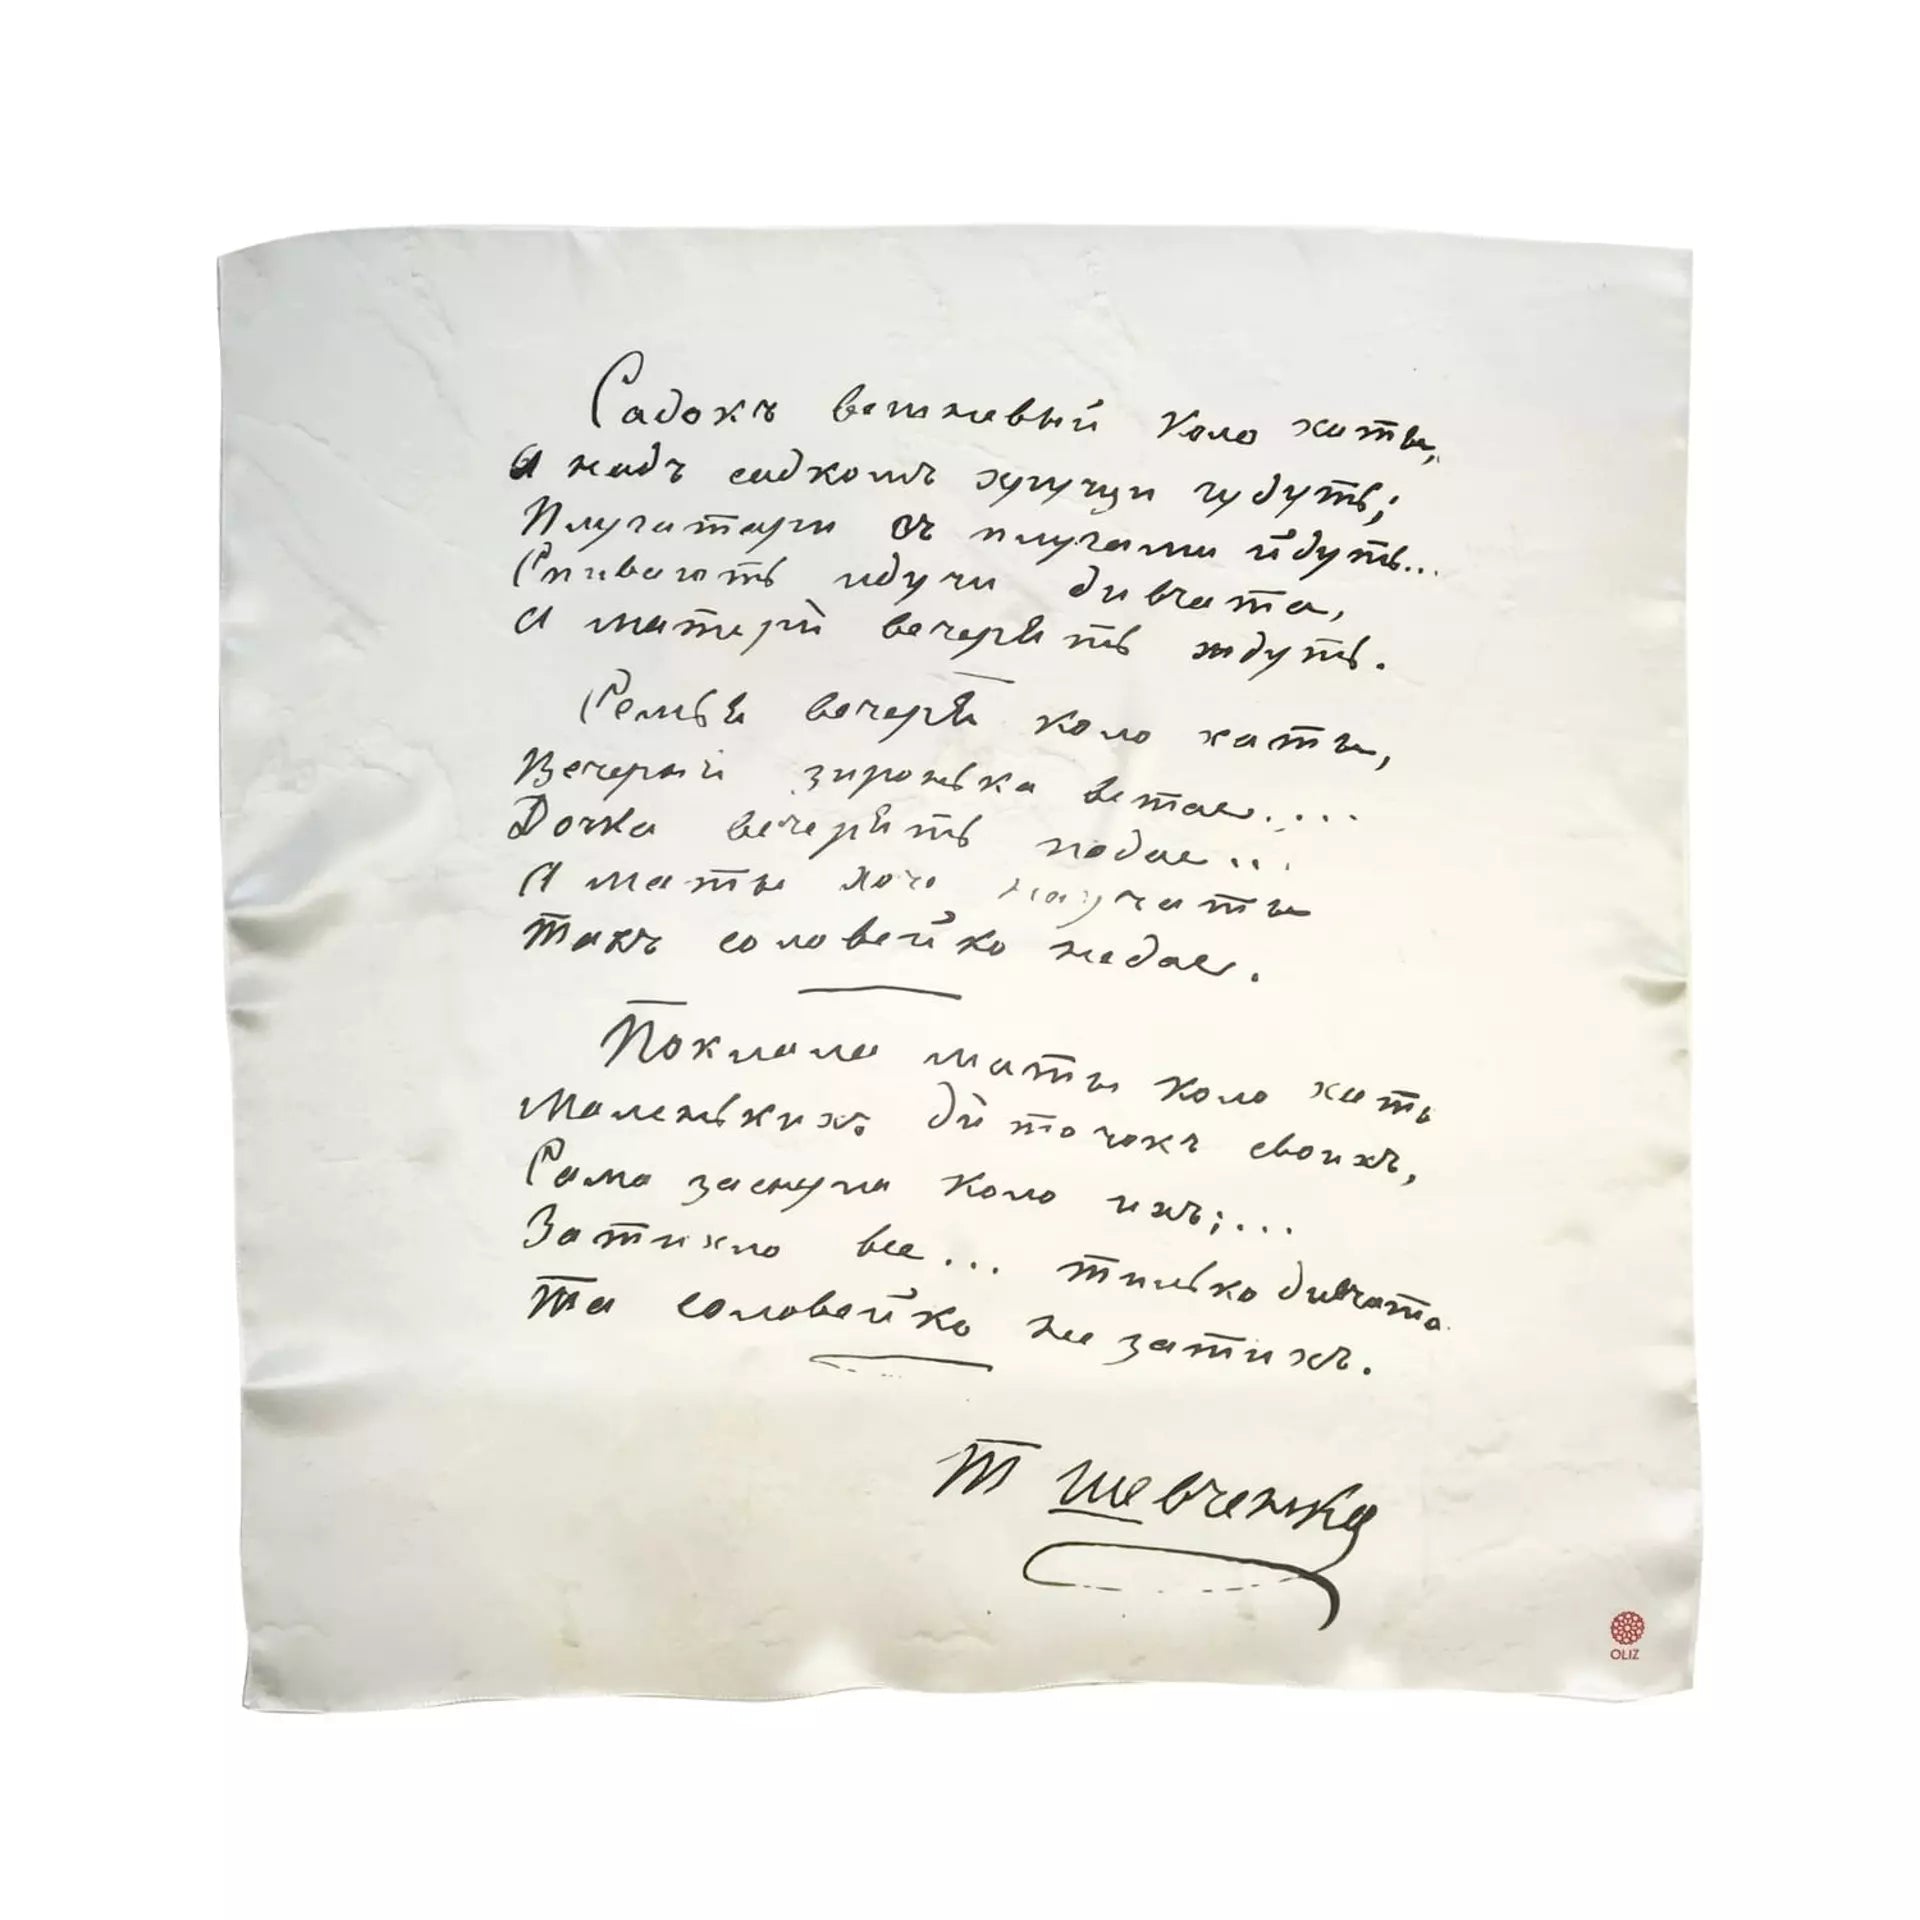 Садокъ вешневый коло хаты,
А надъ садкомъ хрущи гудуть;
Плугатари зъ плугами йдуть...
Спивають идучи дивчата,
А матери вечерять ждуть.
Семья вечеря коло хаты,
Вечерный зиронька встае....
Дочка вечерять подае...
А маты хоче научаты
Такъ соловейко недае.
Поклала маты коло хаты
Маленькихъ диточокъ своихъ,
Сама заснула коло ихъ;...
Затихло все... тилько дивчата
Та соловейко не затихъ.
Т Шевченко
OLIZ